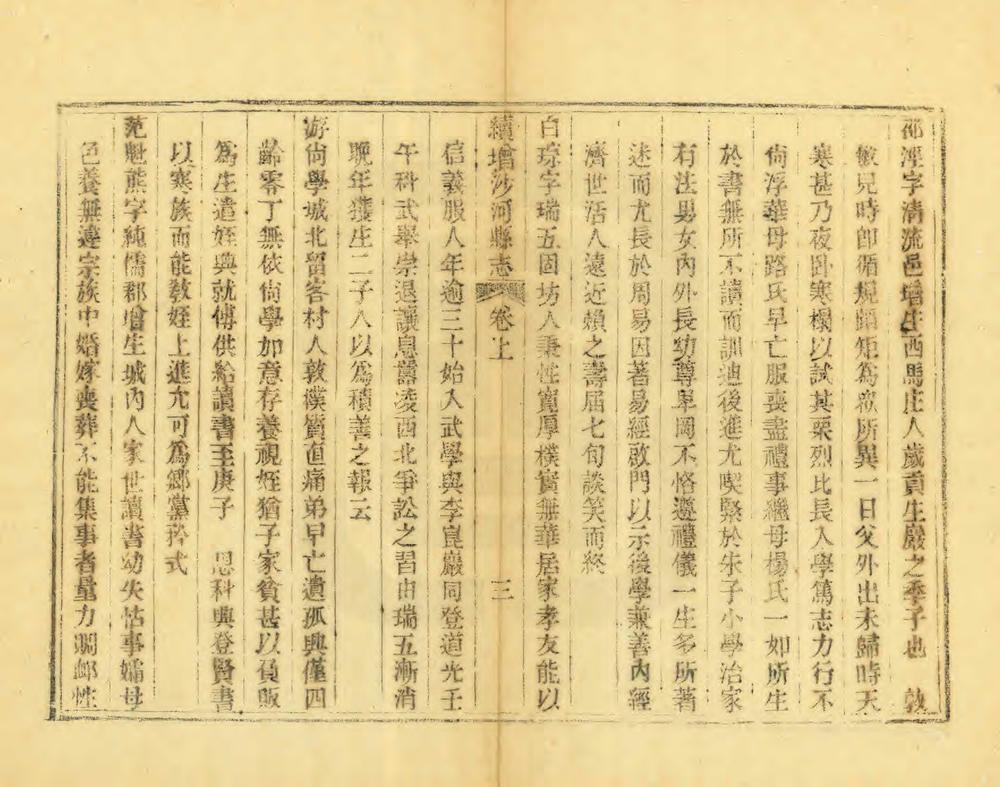 邵涇字清流邑增生西馬庄人歲貢生嚴之季子也
敏兒時即循規蹈矩為衆所異一日父外出未歸時天
寒甚乃夜臥寒榻以試其栗烈比長入學篤志力行不
尙浮華母路氏早亡服喪盡禮事繼母楊氏一如所生
於書無所不讀而訓迪後進尤喫緊於朱子小學治家
有法男女內外長幼尊卑罔不恪遵禮儀一生多所著
述而尤長於周易因著易經啟門以示後學兼善內經
濟世活人遠近賴之壽届七旬談笑而終
白琮字瑞五固坊人秉性寬厚樸實無華居家孝友能以
續增沙河縣志 卷上 三
信義服人年逾三十始入武學與李崑巖同登道光壬
午科武舉崇退讓息囂凌西北爭訟之習由瑞五漸消
晚年獲生二子人以為積善之報云
游尙學城北留客村人敦樸質直痛弟早亡遺孤興僅四
齡零丁無依尙學加意存養視姪猶子家貧甚以負販
為生遣姪興就傅供給讀書至庚子 恩科興登賢書
以寒族而能敎姪上進尤可為鄉黨矜式
范魁熊字純儒郡增生城內人家世讀書幼失怙事孀母
色養無違宗族中婚嫁喪葬不能集事者量力賙卹性